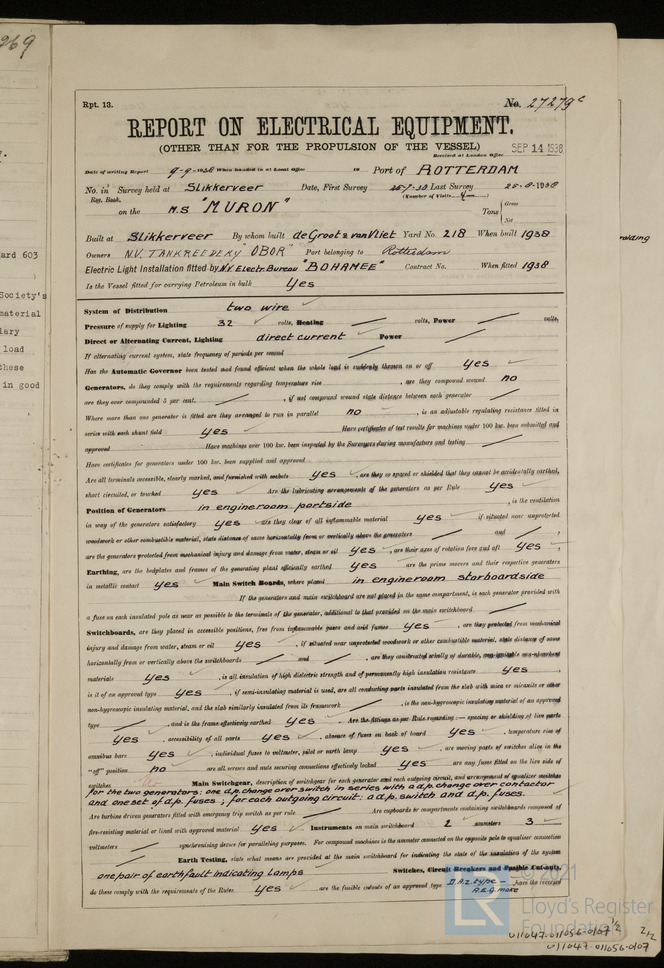 269
Rpt. 13.
No. 27279c
REPORT ON ELECTRICAL EQUIPMENT.
(OTHER THAN FOR THE PROPULSION OF THE VESSEL)
SEP 14 1938
Received at London Office
Date of writing Report 9-9-1938 When handed in at Local Office 10 Port of ROTTERDAM
No. in Survey held at Slikkerveer Date, First Survey 25-7-38 Last Survey 25-8-1938
Reg. Book. (Number of Visits
on the M.S "MURON" Tons Gross
Net
Built at Slikkerveer By whom built de Groot & van Vliet Yard No. 218 When built 1938
Owners N.V. TANKREEDERY "OBOR" Port belonging to Rotterdam
Electric Light Installation fitted by N.V. Electr. Bureau "BOHANEE" Contract No. When fitted 1938
Is the Vessel fitted for carrying Petroleum in bulk Yes
System of Distribution two wire
Pressure of supply for Lighting 32 volts, Heating volts, Power volts.
Direct or Alternating Current, Lighting direct current Power
If alternating current system, state frequency of periods per second
Has the Automatic Governor been tested and found efficient when the whole load is suddenly thrown on or off yes
Generators, do they comply with the requirements regarding temperature rise , are they compound wound no
are they over compounded 5 per cent. , if not compound wound state distance between each generator
Where more than one generator is fitted are they arranged to run in parallel no , is an adjustable regulating resistance fitted in
series with each shunt field yes Have certificates of test results for machines under 100 kw. been submitted and
approved Have machines over 100 kw. been inspected by the Surveyors during manufacture and testing
Have certificates for generators under 100 kw. been supplied and approved
Are all terminals accessible, clearly marked, and furnished with sockets yes , are they so spaced or shielded that they cannot be accidentally earthed,
short circuited, or touched yes Are the lubricating arrangements of the generators as per Rule yes
Position of Generators in engineroom portside , is the ventilation
in way of the generators satisfactory yes are they clear of all inflammable material yes if situated near unprotected
woodwork or other combustible material, state distance of same horizontally from or vertically above the generators and
are the generators protected from mechanical injury and damage from water, steam or oil yes , are their axes of rotation fore and aft yes
Earthing, are the bedplates and frames of the generating plant efficiently earthed yes are the prime movers and their respective generators
in metallic contact yes Main Switch Boards, where placed in engineroom starboardside
If the generators and main switchboard are not placed in the same compartment, is each generator provided with
a fuse on each insulated pole as near as possible to the terminals of the generator, additional to that provided on the main switchboard
Switchboards, are they placed in accessible positions, free from inflammable gases and acid fumes yes , are they protected from mechanical
injury and damage from water, steam or oil yes , if situated near unprotected woodwork or other combustible material, state distance of same
horizontally from or vertically above the switchboards and , are they constructed wholly of durable, non-ignitable non-absorbent
materials yes , is all insulation of high dielectric strength and of permanently high insulation resistance yes
is it of an approved type yes , if semi-insulating material is used, are all conducting parts insulated from the slab with mica or micanite or other
non-hygroscopic insulating material, and the slab similarly insulated from its framework , is the non-hygroscopic insulating material of an approved
type , and is the frame effectively earthed yes Are the fittings as per Rule regarding:— spacing or shielding of live parts
yes , accessibility of all parts yes , absence of fuses on back of board yes , temperature rise of
omnibus bars yes , individual fuses to voltmeter, pilot or earth lamp yes , are moving parts of switches alive in the
"off" position no are all screws and nuts securing connections effectively locked yes are any fuses fitted on the live side of
switches Main Switchgear, description of switchgear for each generator and each outgoing circuit, and arrangement of equaliser switches
for the two generators: one d.p. change over switch in series with a d.p. change over contactor
and one set of d.p. fuses ; for each outgoing circuit: a d.p. switch and d.p. fuses.
Are turbine driven generators fitted with emergency trip switch as per rule Are cupboards or compartments containing switchboards composed of
fire-resisting material or lined with approved material yes Instruments on main switchboard 2 ammeters 3
voltmeters synchronising device for paralleling purposes. For compound machines is the ammeter connected on the opposite pole to equaliser connection
Earth Testing, state what means are provided at the main switchboard for indicating the state of the insulation of the system
one pair of earthfault indicating lamps Switches, Circuit Breakers and Fusible Cut-outs,
do these comply with the requirements of the Rules yes are the fusible cutouts of an approved type D.A.z. type — have the reversed
A.E.G. make
© 2021
LR
Lloyd's Register
Foundation
011047-011056-0107 1/2
2/2
011047-011056-0107
ard 603
Society's
material
load
these
in good